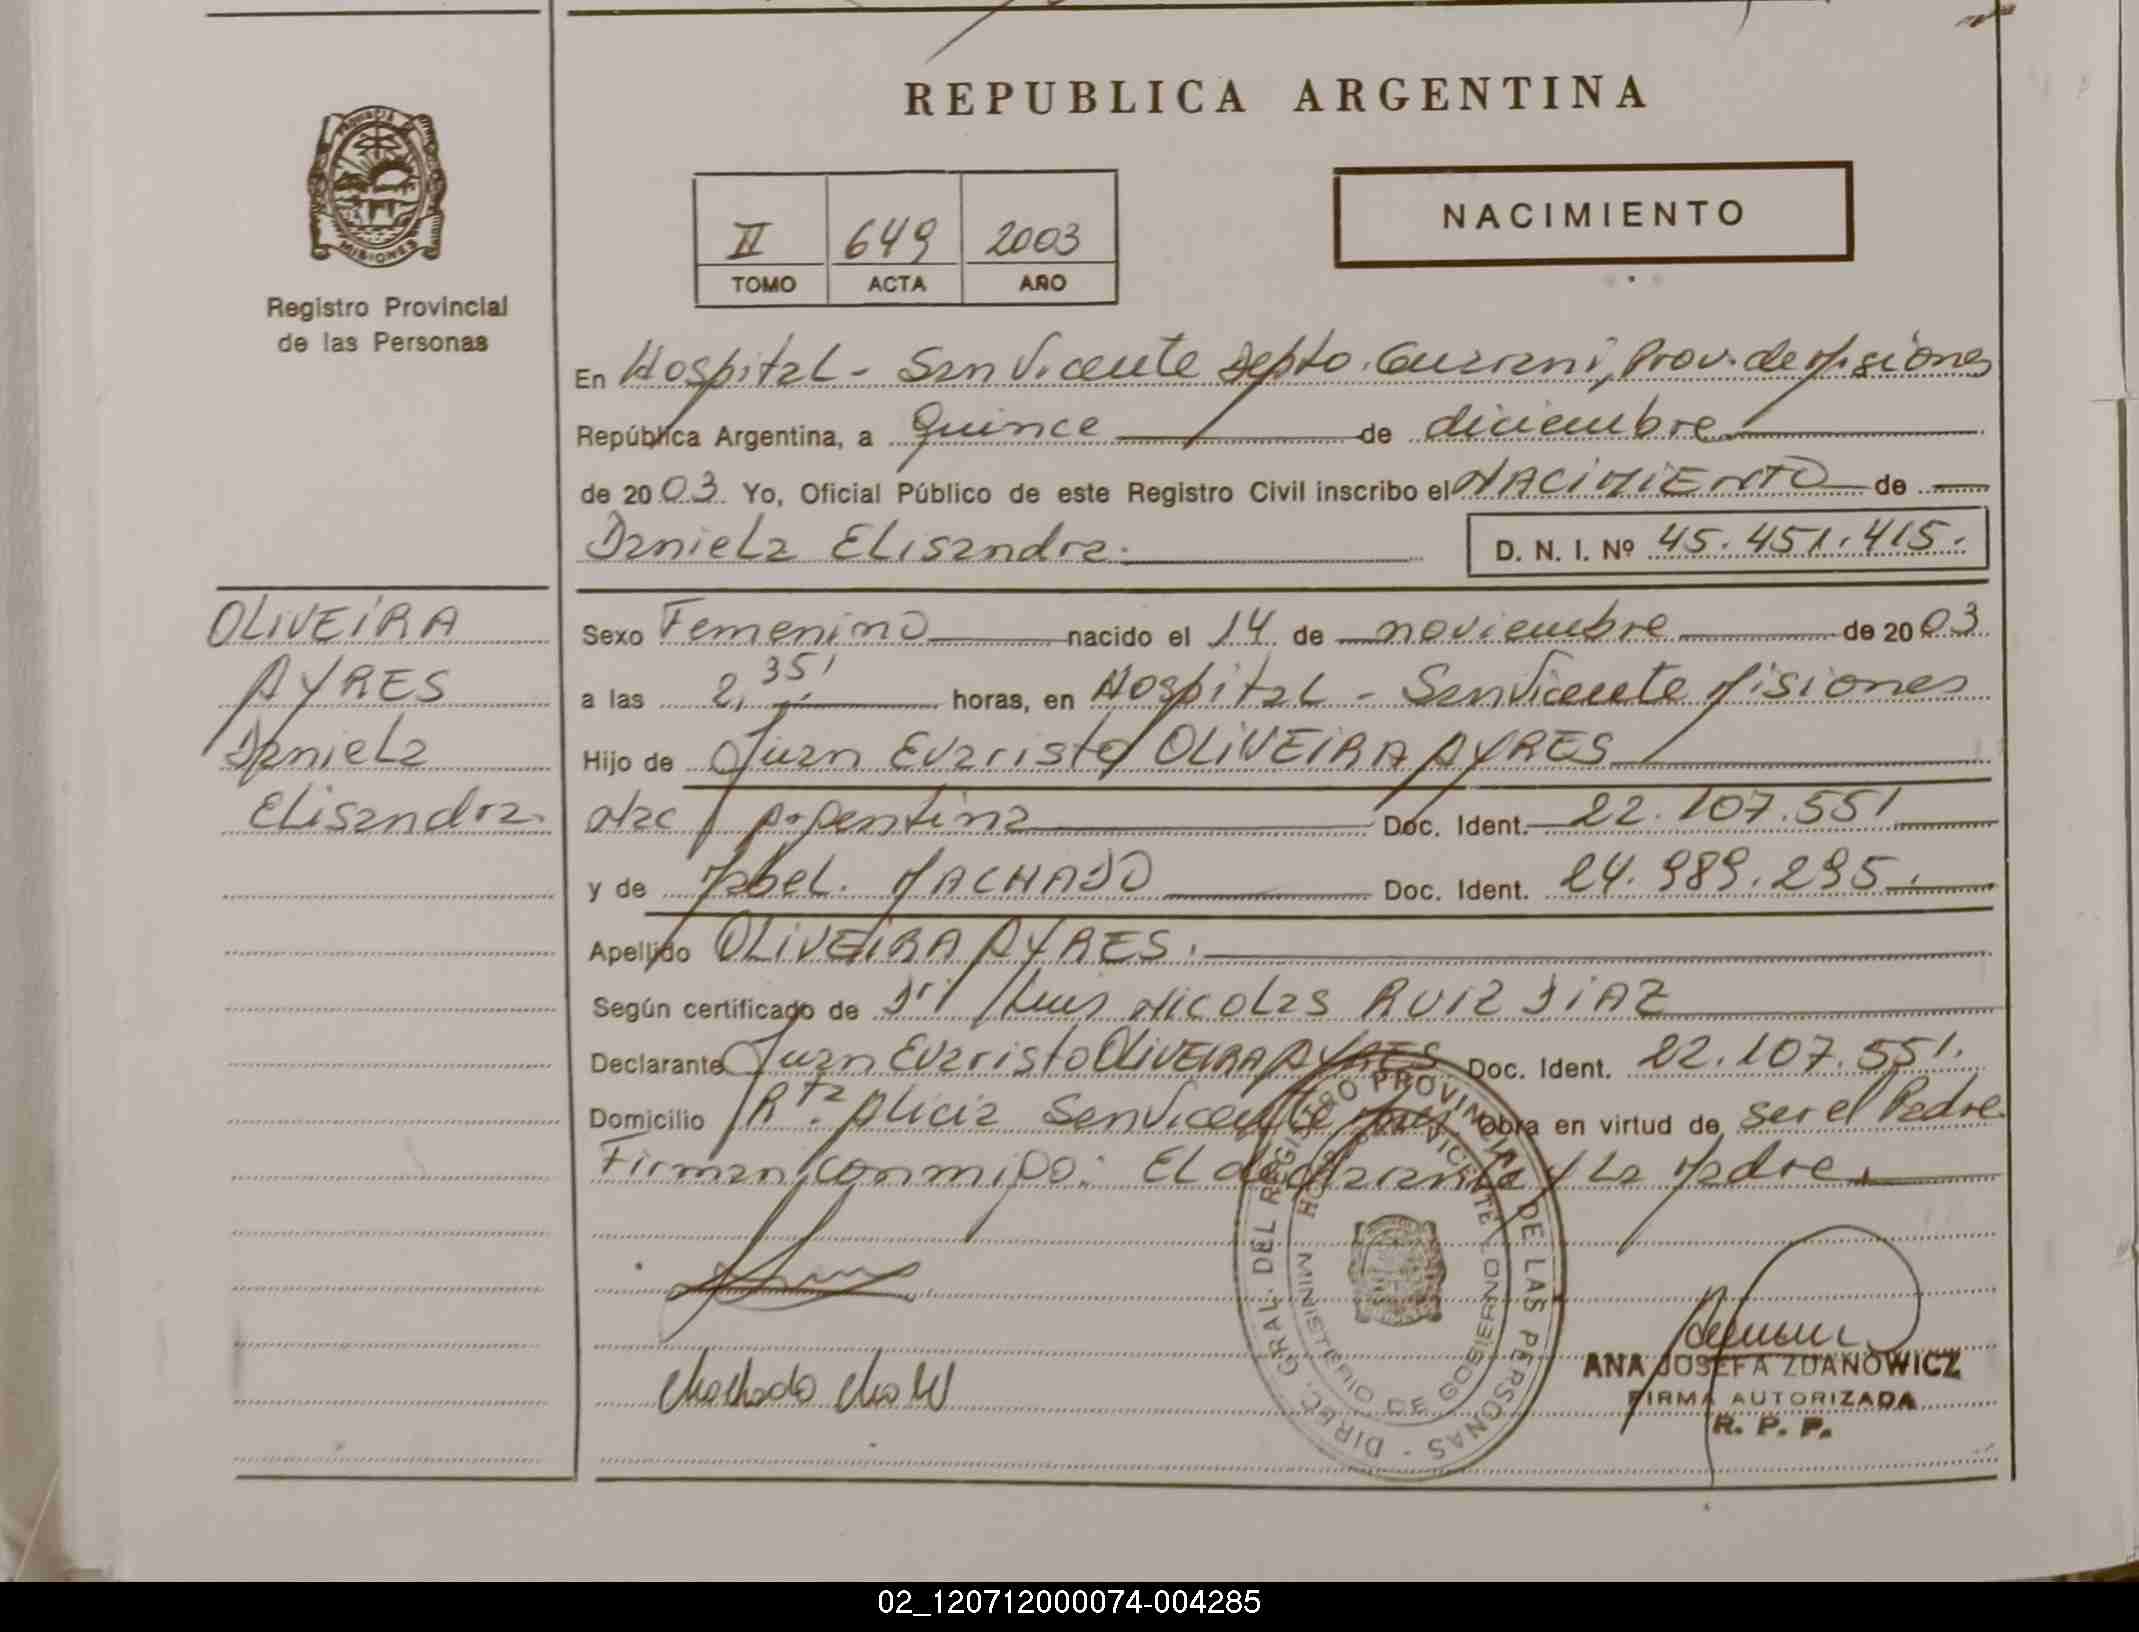 REPUBLICA ARGENTINA
PROVINCIA DE
MISIONES
Registro Provincial
de las Personas
II 649 2003
TOMO ACTA AÑO
NACIMIENTO
En Hospital - San Vicente Depto. Guarani, Prov. de Misiones
República Argentina, a Quince de diciembre
de 2003 Yo, Oficial Público de este Registro Civil inscribo el NACIMIENTO de
Daniela Elisandra.
D. N. I. Nº 45.451.415.
OLIVEIRA
AYRES
Daniela
Elisandra.
Sexo Femenino nacido el 14 de noviembre de 2003
a las 2,35' horas, en Hospital - San Vicente Misiones
Hijo de Juan Evaristo OLIVEIRA AYRES
Nac Argentina Doc. Ident. 22.107.551
y de Mabel. MACHADO Doc. Ident. 24.989.295.
Apellido OLIVEIRA AYRES.
Según certificado de Dr. Luis Nicolas RUIZ DIAZ
Declarante Juan Evaristo OLIVEIRA AYRES Doc. Ident. 22.107.551.
Domicilio Rta. Alicia San Vicente Mnes Obra en virtud de ser el Padre.
Firman conmigo: El declarante y La Madre.
DIREC. GRAL. DEL REGISTRO PROVINCIAL DE LAS PERSONAS
HOSP. SAN VICENTE
MINISTERIO DE GOBIERNO
Machado Mabel
ANA JOSEFA ZDANOWICZ
FIRMA AUTORIZADA
R. P. P.
02_120712000074-004285